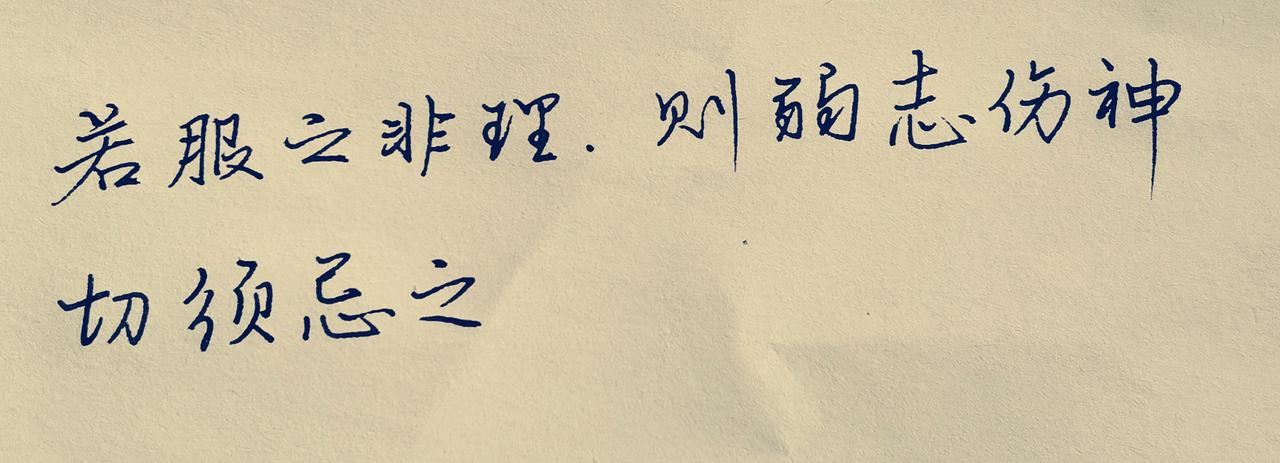 若服之非理.则弱志伤神
切须忌之